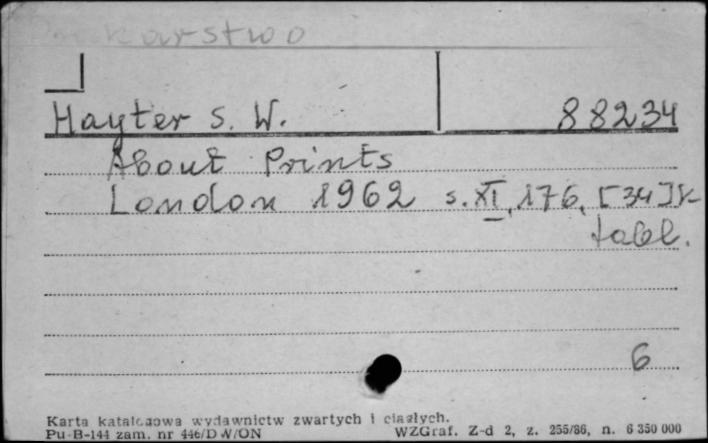 Drukarstwo
Hayter S. W. 88234
About Prints
London 1962 s. XI, 176, [34] k
tabl.
6
Karta katalogowa wydawnictw zwartych i ciągłych.
Pu-B-144 zam. nr 446/DW/ON WZGraf. Z-d 2, z. 255/86, n. 6 350 000